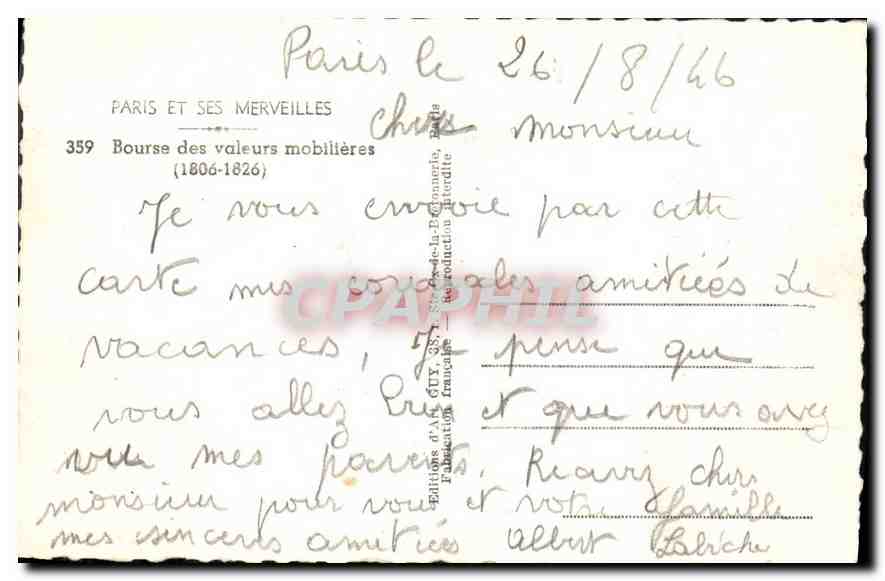 Paris le 26/8/46
PARIS ET SES MERVEILLES
359 Bourse des valeurs mobilières
(1806-1826)
chers monsieur
Je vous envoie par cette
carte mes cordiales amitiées de
vacances, Je pense que
vous allez bien et que vous avez
vu mes parents. Recevez chers
monsieur pour vous et votre famille
mes sinceres amitiées Albert Labiche
Editions d'Art GUY, 38, r. Ste-Croix-de-la-Bretonnerie, Paris
Fabrication française — Reproduction interdite
CPAPHIL